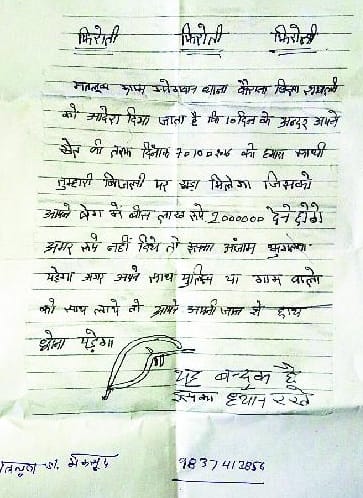 फिरौती फिरौती फिरौती
थाना कैराना जिला शामली
को आदेश दिया जाता है कि 10 दिन के अन्दर अपने
खेत की तरफ दिनांक को हमारा साथी
तुम्हारी बिजली पर खड़ा मिलेगा जिसको
आपने बेग में बीस लाख रूपे 2000000 देने होंगे
अगर रूपे नहीं दिये तो इसका अंजाम भुगतना
पड़ेगा अगर अपने साथ पुलिस या गाम वालो
को साथ लाये तो आपको अपनी जान से हाथ
धोना पड़ेगा
यह बन्दुक है
इसका ध्यान रखे
9837412856